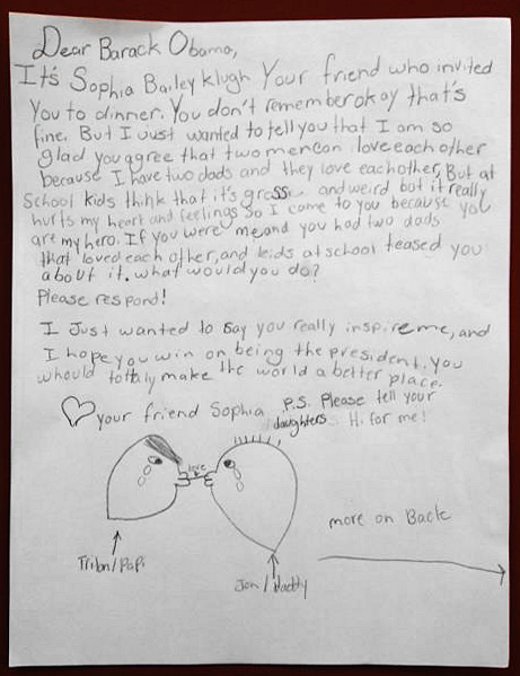 Dear Barack Obama,
It's Sophia Bailey Klugh Your friend who invited
You to dinner. You don't remember okay that's
fine. But I Just wanted to tell you that I am so
glad you agree that two men can love each other
because I have two dads and they love each other, But at
School kids think that it's gross and weird but it really
hurts my heart and feelings So I come to you because you
are my hero. If you were me and you had two dads
that loved each other, and kids at school teased you
about it. what would you do?
Please respond!
I Just wanted to say you really inspire me, and
I hope you win on being the president. You
whould tottaly make the world a better place.
♡ your friend Sophia
P.S. Please tell your
daughters Hi for me!
love
more on Back
Papi
Jon / Daddy